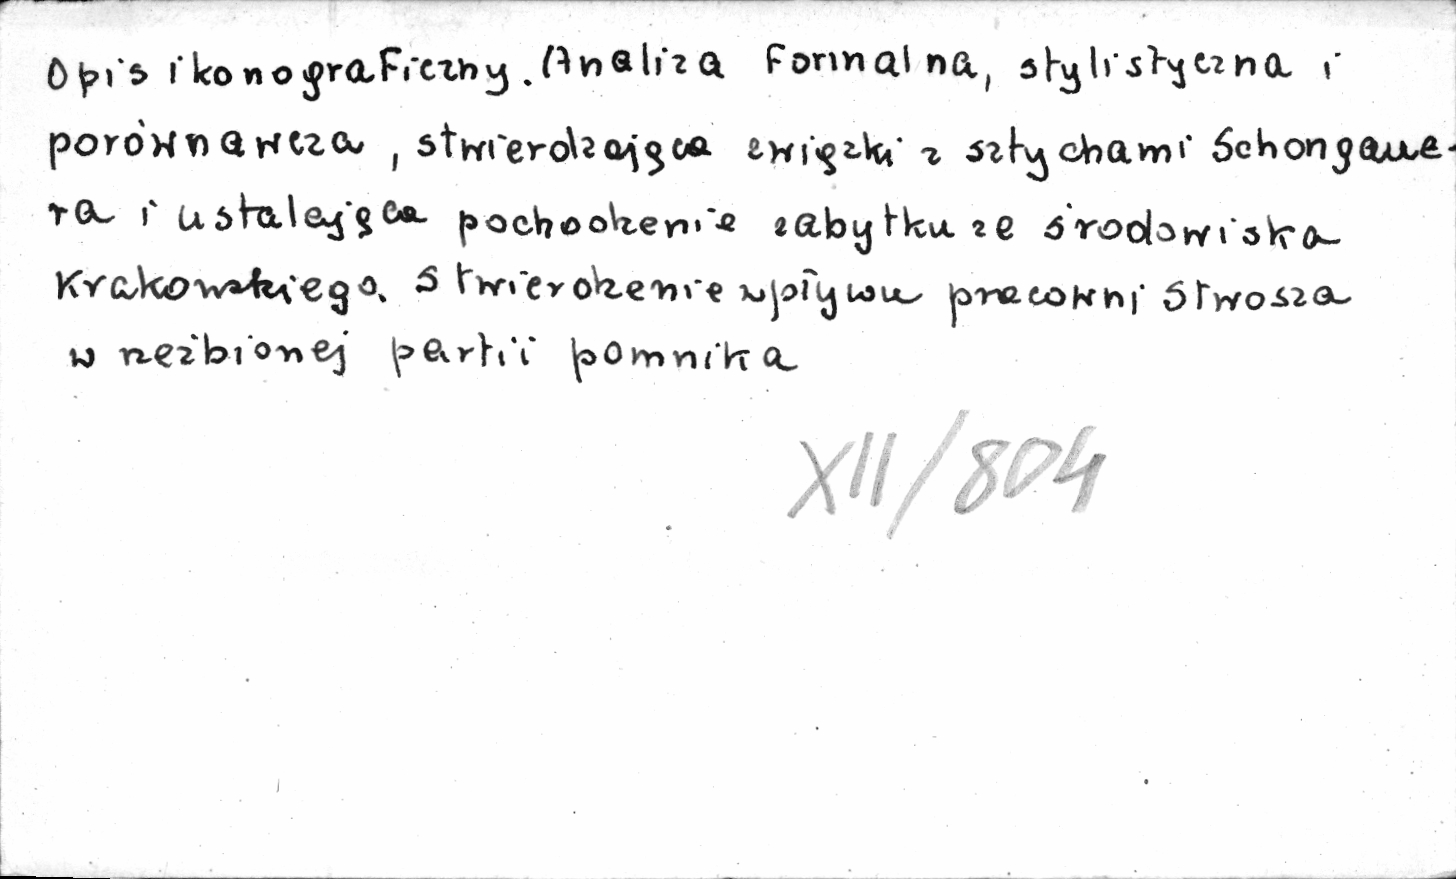 Opis ikonograficzny. Analiza formalna, stylistyczna i
porównawcza, stwierdzająca związki z sztychami Schongaue-
ra i ustalająca pochodzenie zabytku ze środowiska
Krakowskiego. Stwierdzenie wpływu pracowni Stwosza
w rzeźbionej partii pomnika
XII/804